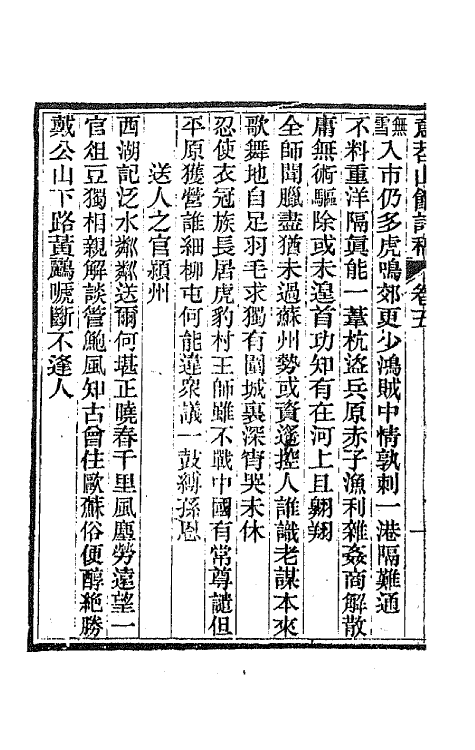 意苕山館詩稿　卷五　一
無雪入市仍多虎鳴郊更少鴻賊中情孰刺一港隔難通
不料重洋隔眞能一葦杭盜兵原赤子漁利雜姦商解散
庸無術驅除或未遑首功知有在河上且翱翔
全師聞臘盡猶未過蘇州勢或資遙控人誰識老謀本來
歌舞地自足羽毛求獨有圍城裏深宵哭未休
忍使衣冠族長居虎豹村王師雖不戰中國有常尊譴但
平原獲營誰細柳屯何能違衆議一鼓縛孫恩
送人之官潁州
西湖記泛水粼粼送爾何堪正曉春千里風塵勞遠望一
官俎豆獨相親解談管鮑風知古曾住歐蘇俗便醇絶勝
戴公山下路黃鸝嗁斷不逢人